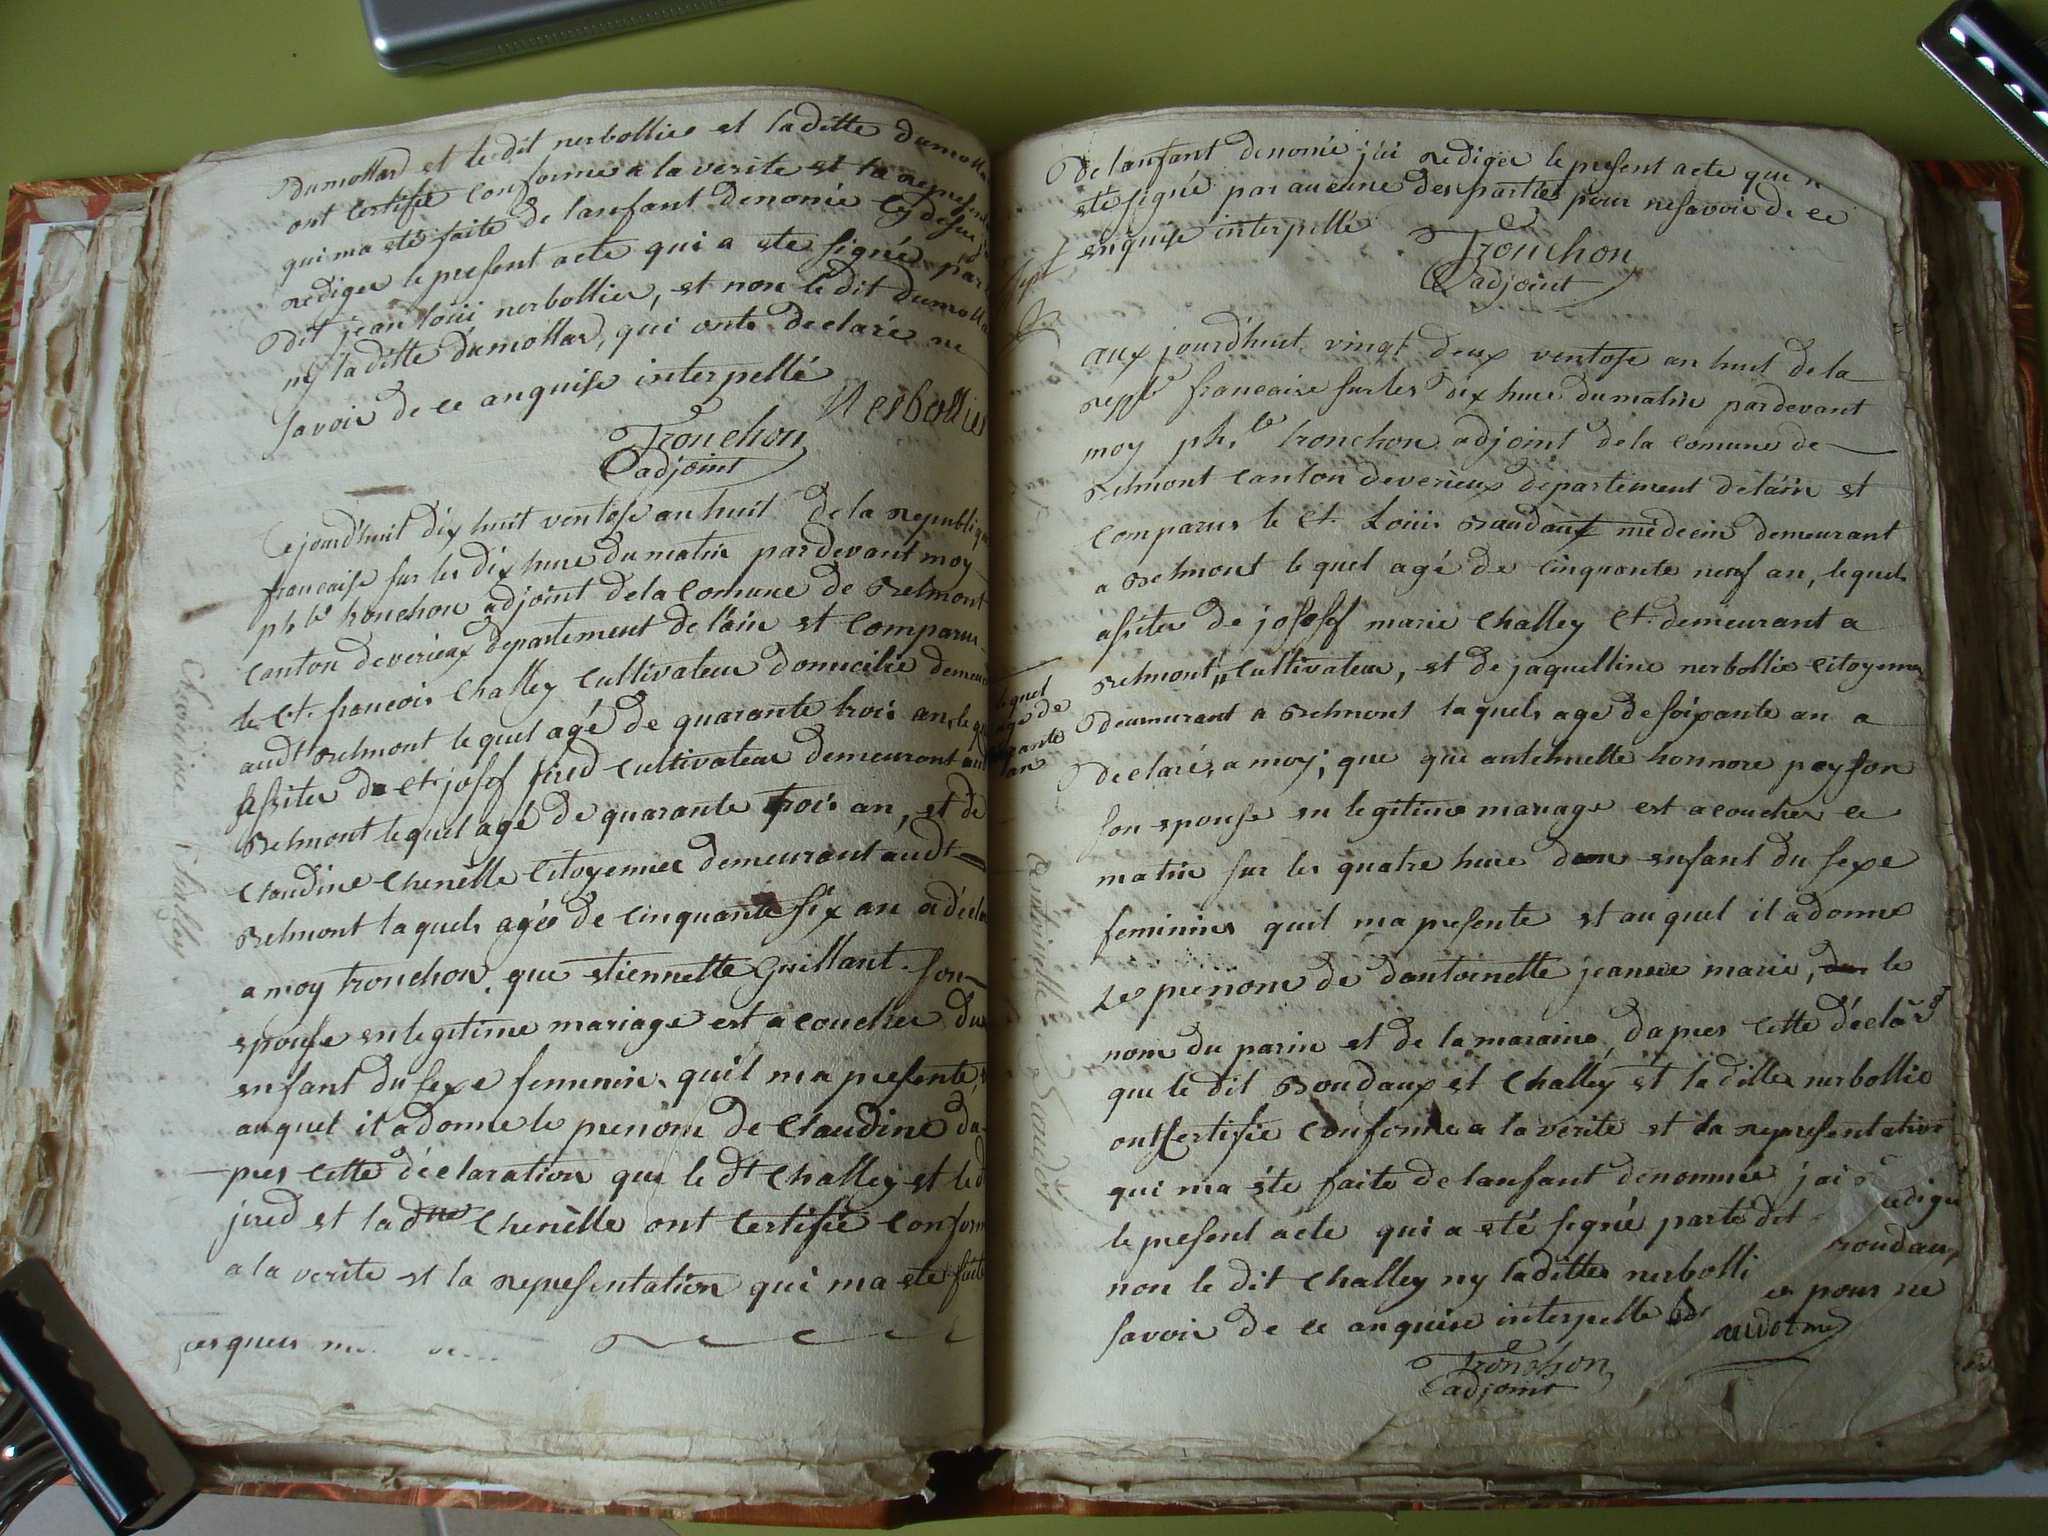 Dumollar et le dit nerbollier et laditte dumolla
ont certifie conforme a la verite et la represent
qui ma ete faite de lanfant denomé cy desu j
rediger le present acte qui a ete signé par
dit jean loüi nerbollier, et non ledit dumolla
ny laditte dumollar, qui onts declaré ne
savoir de ce anquise interpellé
Nerbollier
Tronchon
adjoint
Cejourdhuit dix huit ventose an huit de la republique
francaise sur les dix hure du matin pardevant moy
phle tronchon adjoint de la comune de Belmont
canton deverieux departement de lain et comparus
le Ct. francois Challey cultivateur domicilie demeu
audt Belmont lequel agé de quarante trois an, leq
assiter de Ct. josef jired cultivateur demeuront aud
Belmont lequel agé de quarante trois an, et de
Claudine Chenelle Citoyenne demeurant audt
Belmont laquels agée de cinquante six an a décla
a moy tronchon, que etiennette Guillant son
epouse en legitime mariage est acoucher du
enfant du sexe feminin quil ma presente,
auquel il a donne le prenom de Claudine da
pres cette déclaration que le dt Challey et led
jired et la dne Chenelle ont certifie conform
a la verite et la representation qui ma ete faite
Claudine Challey
De lanfant denomé j'ai rediger le present acte que n
ete signé par aucune des partie pour nesavoir de ce
enquise interpellé
Tronchon
adjoint
aux jourdhuit vingt deux ventose an huit de la
repple francaise sur les dix hure du matin pardevant
moy ph.le tronchon adjoint de la comune de
Belmont canton deverieux departement de lain et
comparus le Ct. Loüis Baudaux medecin demeurant
a Belmont lequel agé de cinquante neuf an, lequel
assiter de josesef marie Challey Ct. demeurant a
Belmont, cultivateur, et de jaquelline nerbollie citoyenne
lequel
age de
ante
an
Deumurant a Belmont laquels age de soixante an a
declaré, a moy; que que antoinette honnore peysson
son epouse en legitime mariage est acoucher ce
matin sur les quatre hure dun enfant du sexe
feminin quil ma presente et auquel il a donne
Le prenom de dantoinette jeanne marie, le
nom du parin et de la maraine, dapres cette décla
que le dit Boudaux et Challey et laditte nerbollie
ont certifie conforme a la verite et la representation
qui ma ete faite de lanfant denomme jai redige
le present acte qui a eté signé parle dit boudaux
non le dit Challey ny laditte nerbollier pour ne
savoir de ce anquise interpelle
audot
Tronchon
adjoint
antoinette Baudot